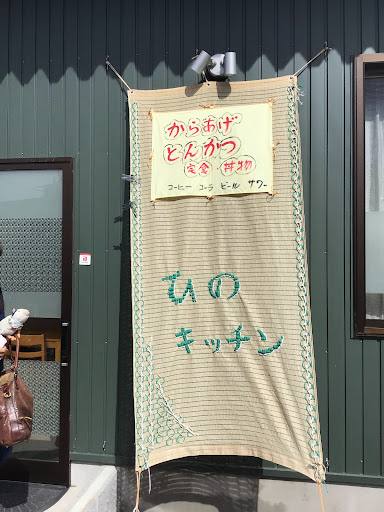 からあげ
とんかつ
定食 丼物
コーヒー コーラ ビール サワー
ひの
キッチン